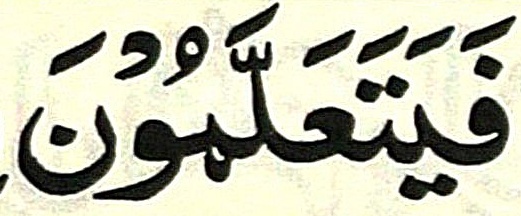 فَيَتَعَلَّمُوْنَ